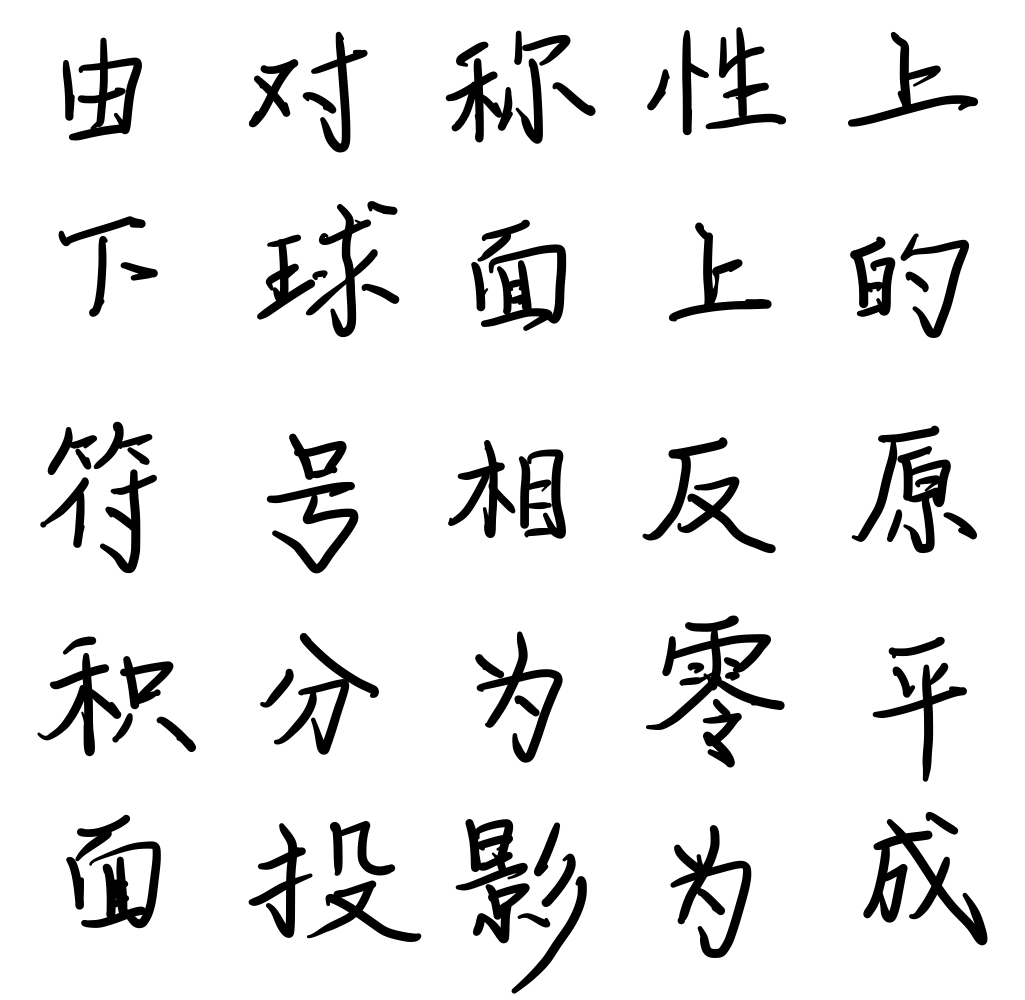 由对称性上
下球面上的
符号相反原
积分为零平
面投影为成